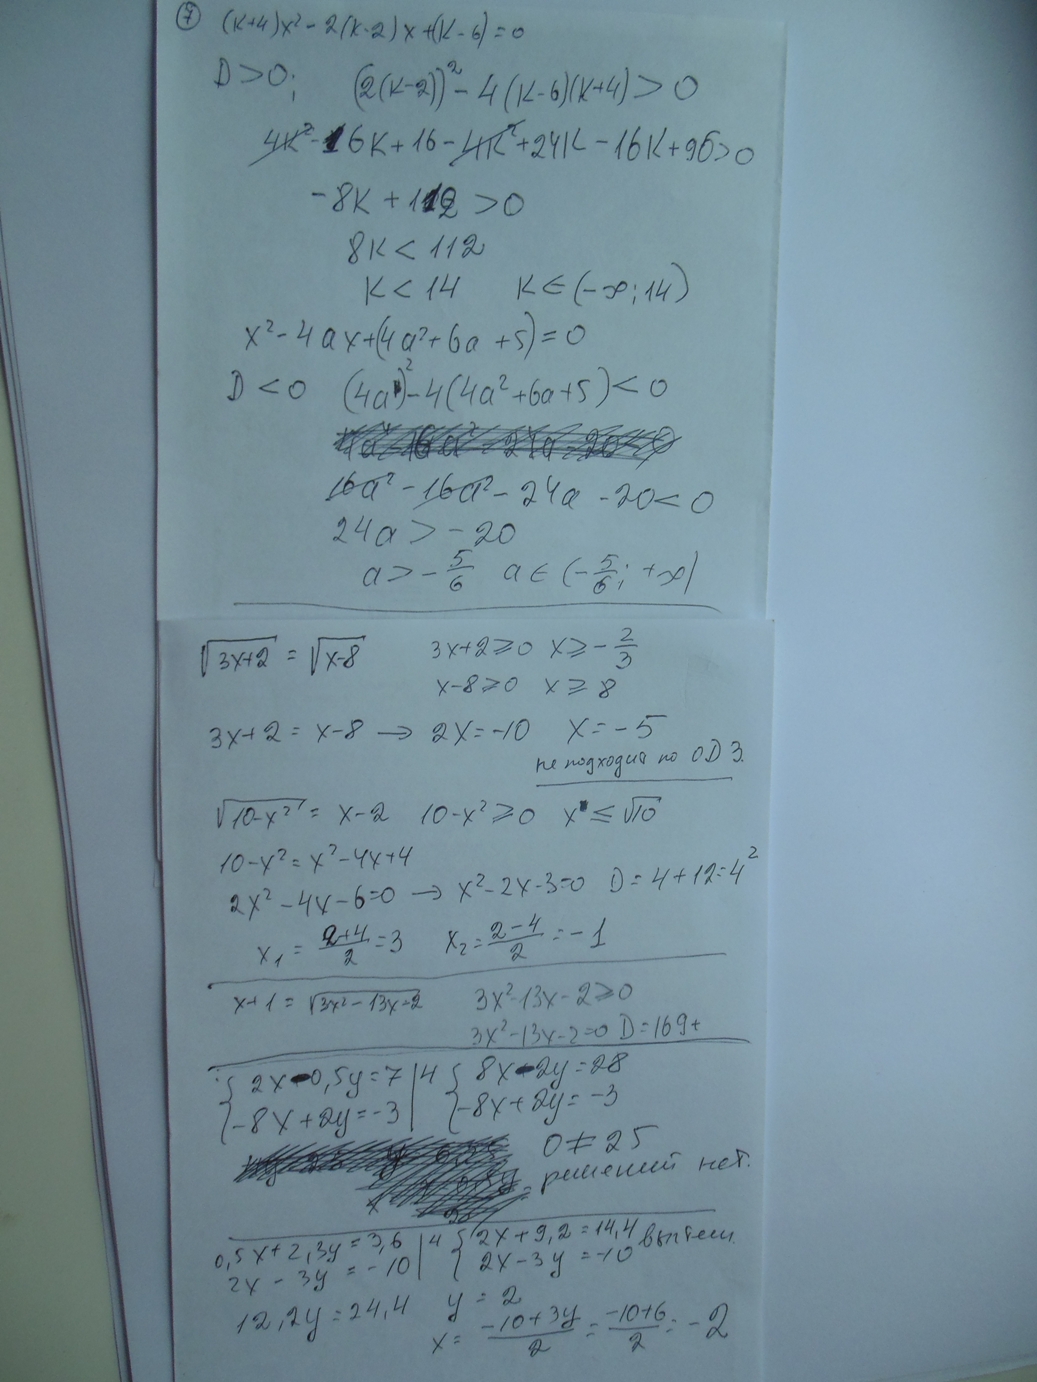 ⑦ (K+4)x² - 2(K-2)x+(K-6)=0
D>0; (2(K-2))² - 4(K-6)(K+4)>0
4K² - 16K + 16 - 4K² + 24K - 16K + 96>0
-8K + 112 >0
8K < 112
K < 14 K ∈ (-∞; 14)
x² - 4ax+(4a²+6a+5)=0
D < 0 (4a)² - 4(4a²+6a+5) < 0
16a² - 16a² - 24a - 20 < 0
24a > - 20
a > - 5/6 a ∈ (- 5/6; +∞)
√3x+2 = √x-8 3x+2 ≥ 0 x ≥ - 2/3
x-8 ≥ 0 x ≥ 8
3x+2 = x-8 → 2x = -10 x = -5
не подходит по ОДЗ.
√10-x² = x-2 10-x² ≥ 0 x ≤ √10
10-x² = x²-4x+4
2x² - 4x - 6=0 → x² - 2x - 3=0 D = 4+12=4²
x₁ = 2+4/2 = 3 x₂ = 2-4/2 = -1
x+1 = √3x²-13x-2 3x²-13x-2 ≥ 0
3x²-13x-2=0 D=169+
{ 2x-0,5y=7 |4 { 8x-2y=28
{ -8x+2y=-3 | { -8x+2y=-3
0 ≠ 25
решений нет.
0,5x+2,3y=3,6 |4 { 2x+9,2=14,4 вычтем.
2x - 3y = -10 | { 2x-3y = -10
12,2y=24,4 y = 2
x = -10+3y/2 = -10+6/2 = -2